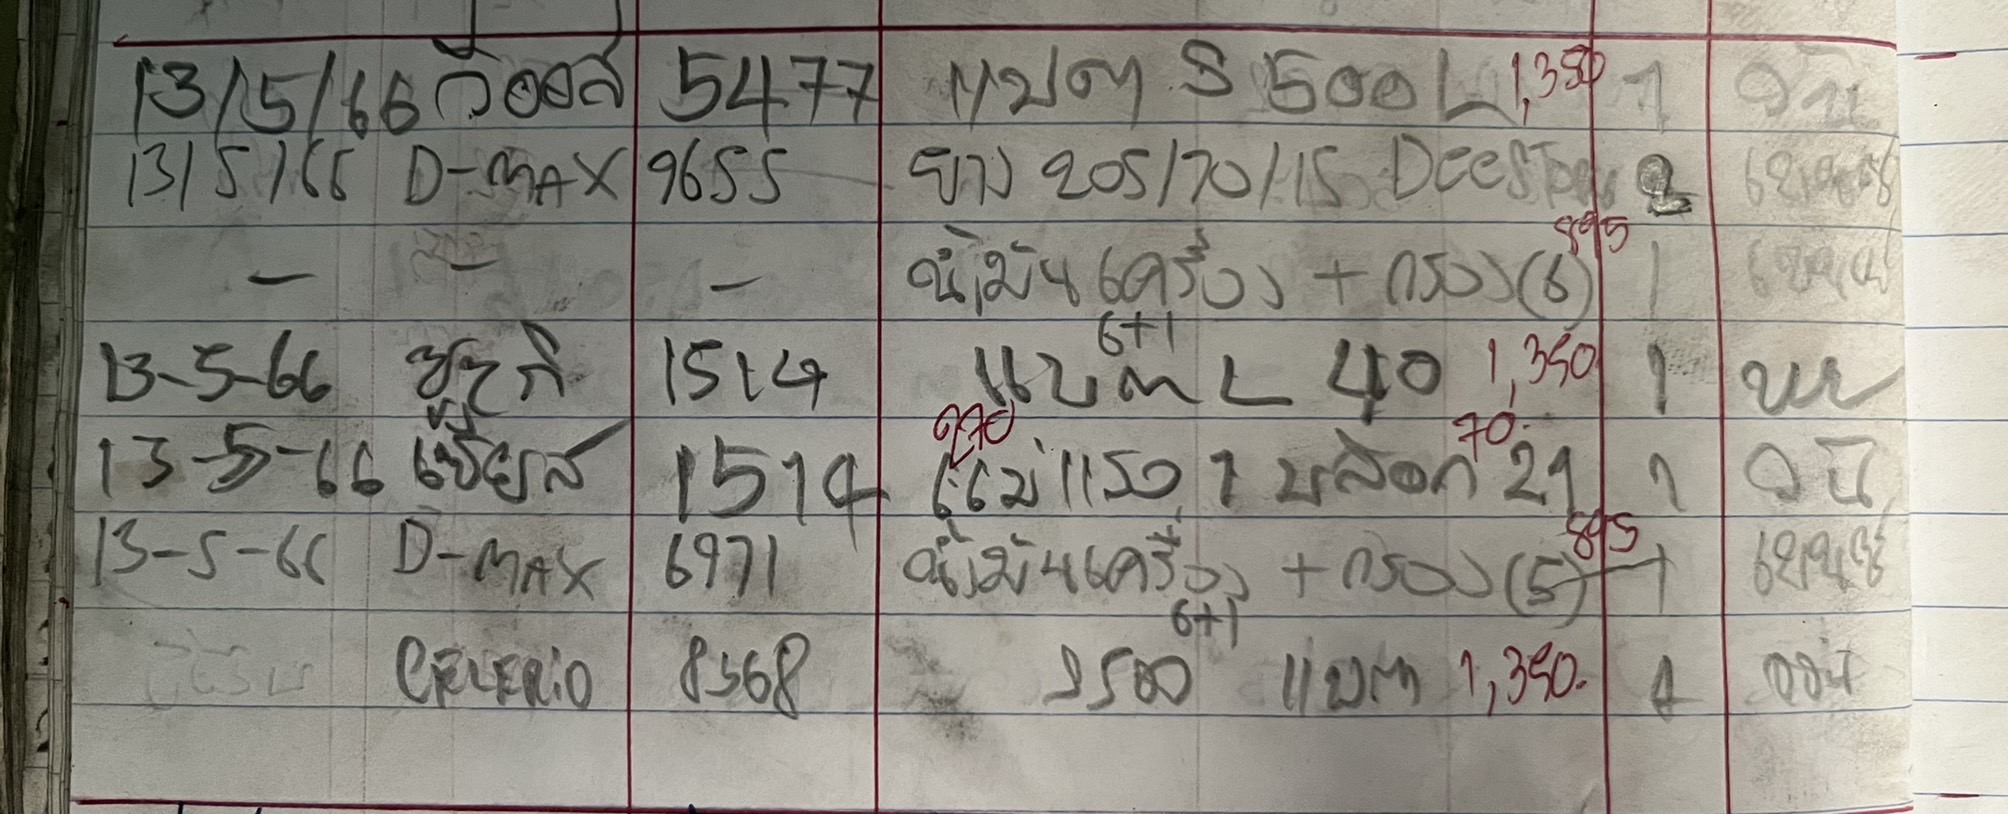 13/5/66 วีออส 5477 แบต S 500 L 1,350 1
13/5/66 D-MAX 9655 ยาง 205/70/15 Deestone 2
— — — น้ำมันเครื่อง + กรอง (6) 895 1
6+1
13-5-66 ซูซูกิ 1514 แบต L 40 1,350 1
270 70.
13-5-66 เซียส 1514 1 บล็อก 21 1
13-5-66 D-MAX 6971 น้ำมันเครื่อง + กรอง (5) 895 1
6+1
CELERIO 8368 S500 แบต 1,350. 1